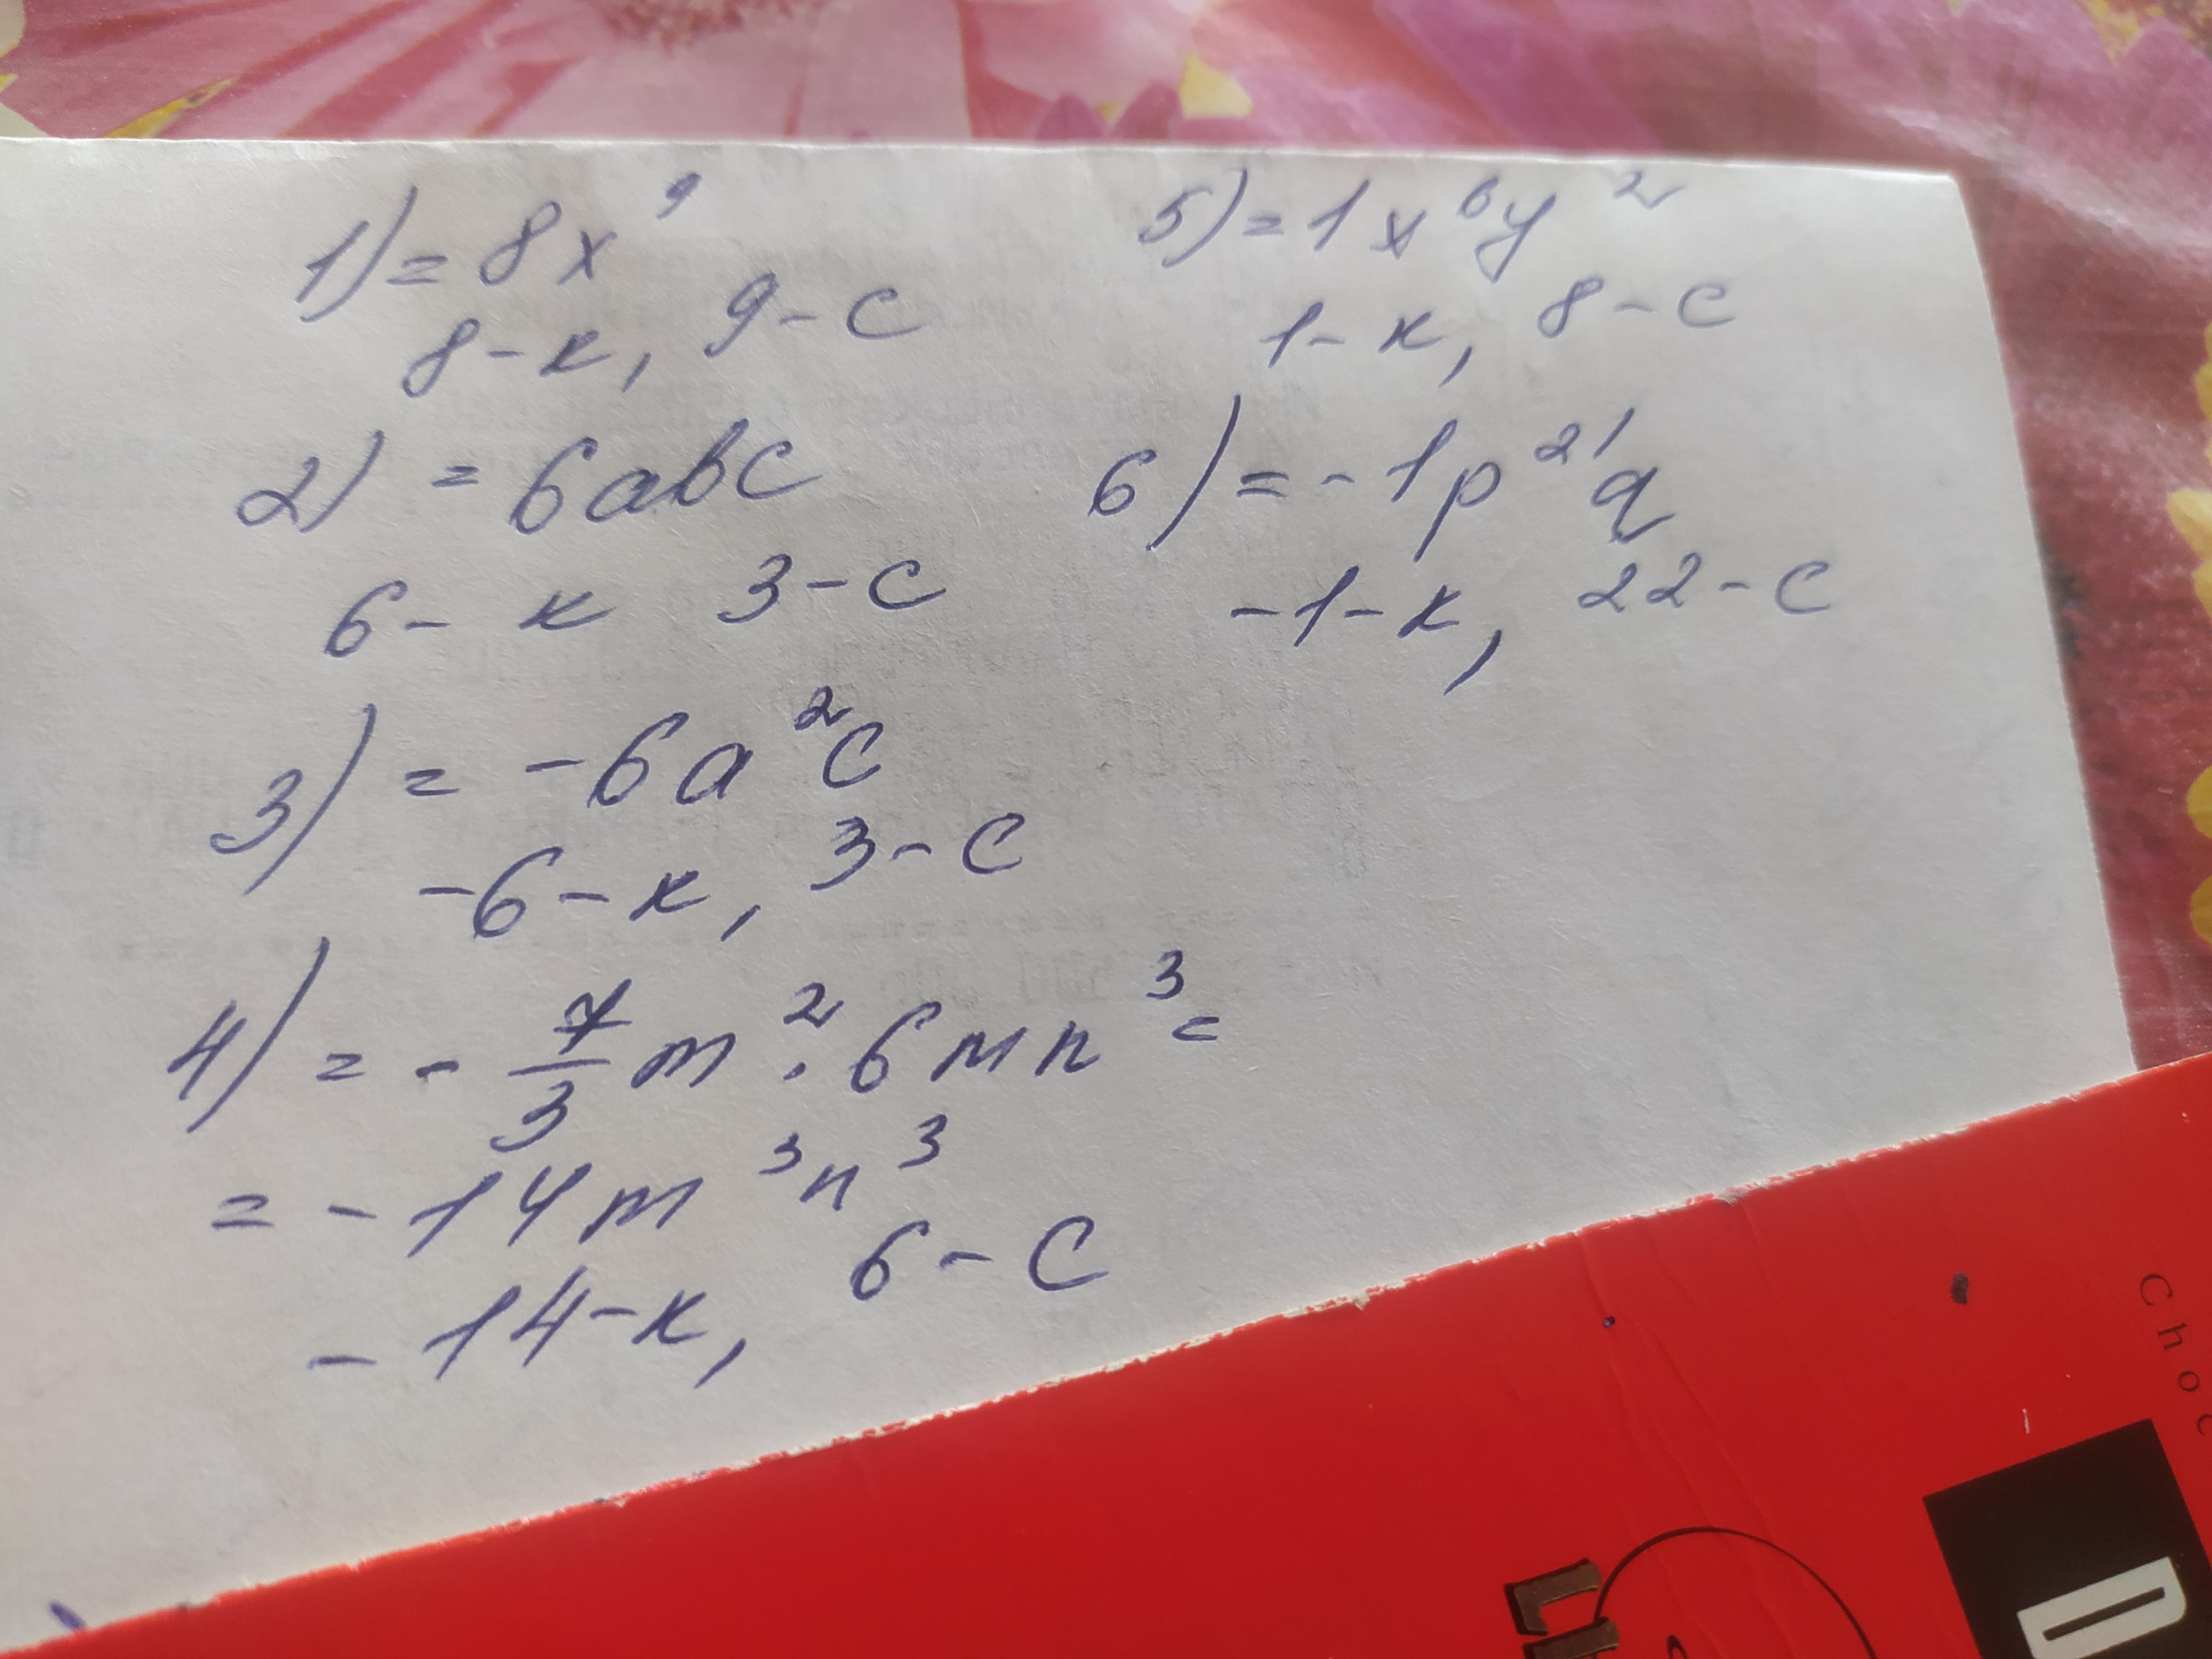 1) = 8x⁹
8 - к, 9 - с
2) = 6abc
6 - к 3 - с
3) = -6a²c
-6 - к, 3 - с
4) = - 7/3 m² · 6mn³ =
= -14m³n³
-14 - к, 6 - с
5) = 1x⁶y²
1 - к, 8 - с
6) = -1p²¹q
-1 - к, 22 - с
Choc
D